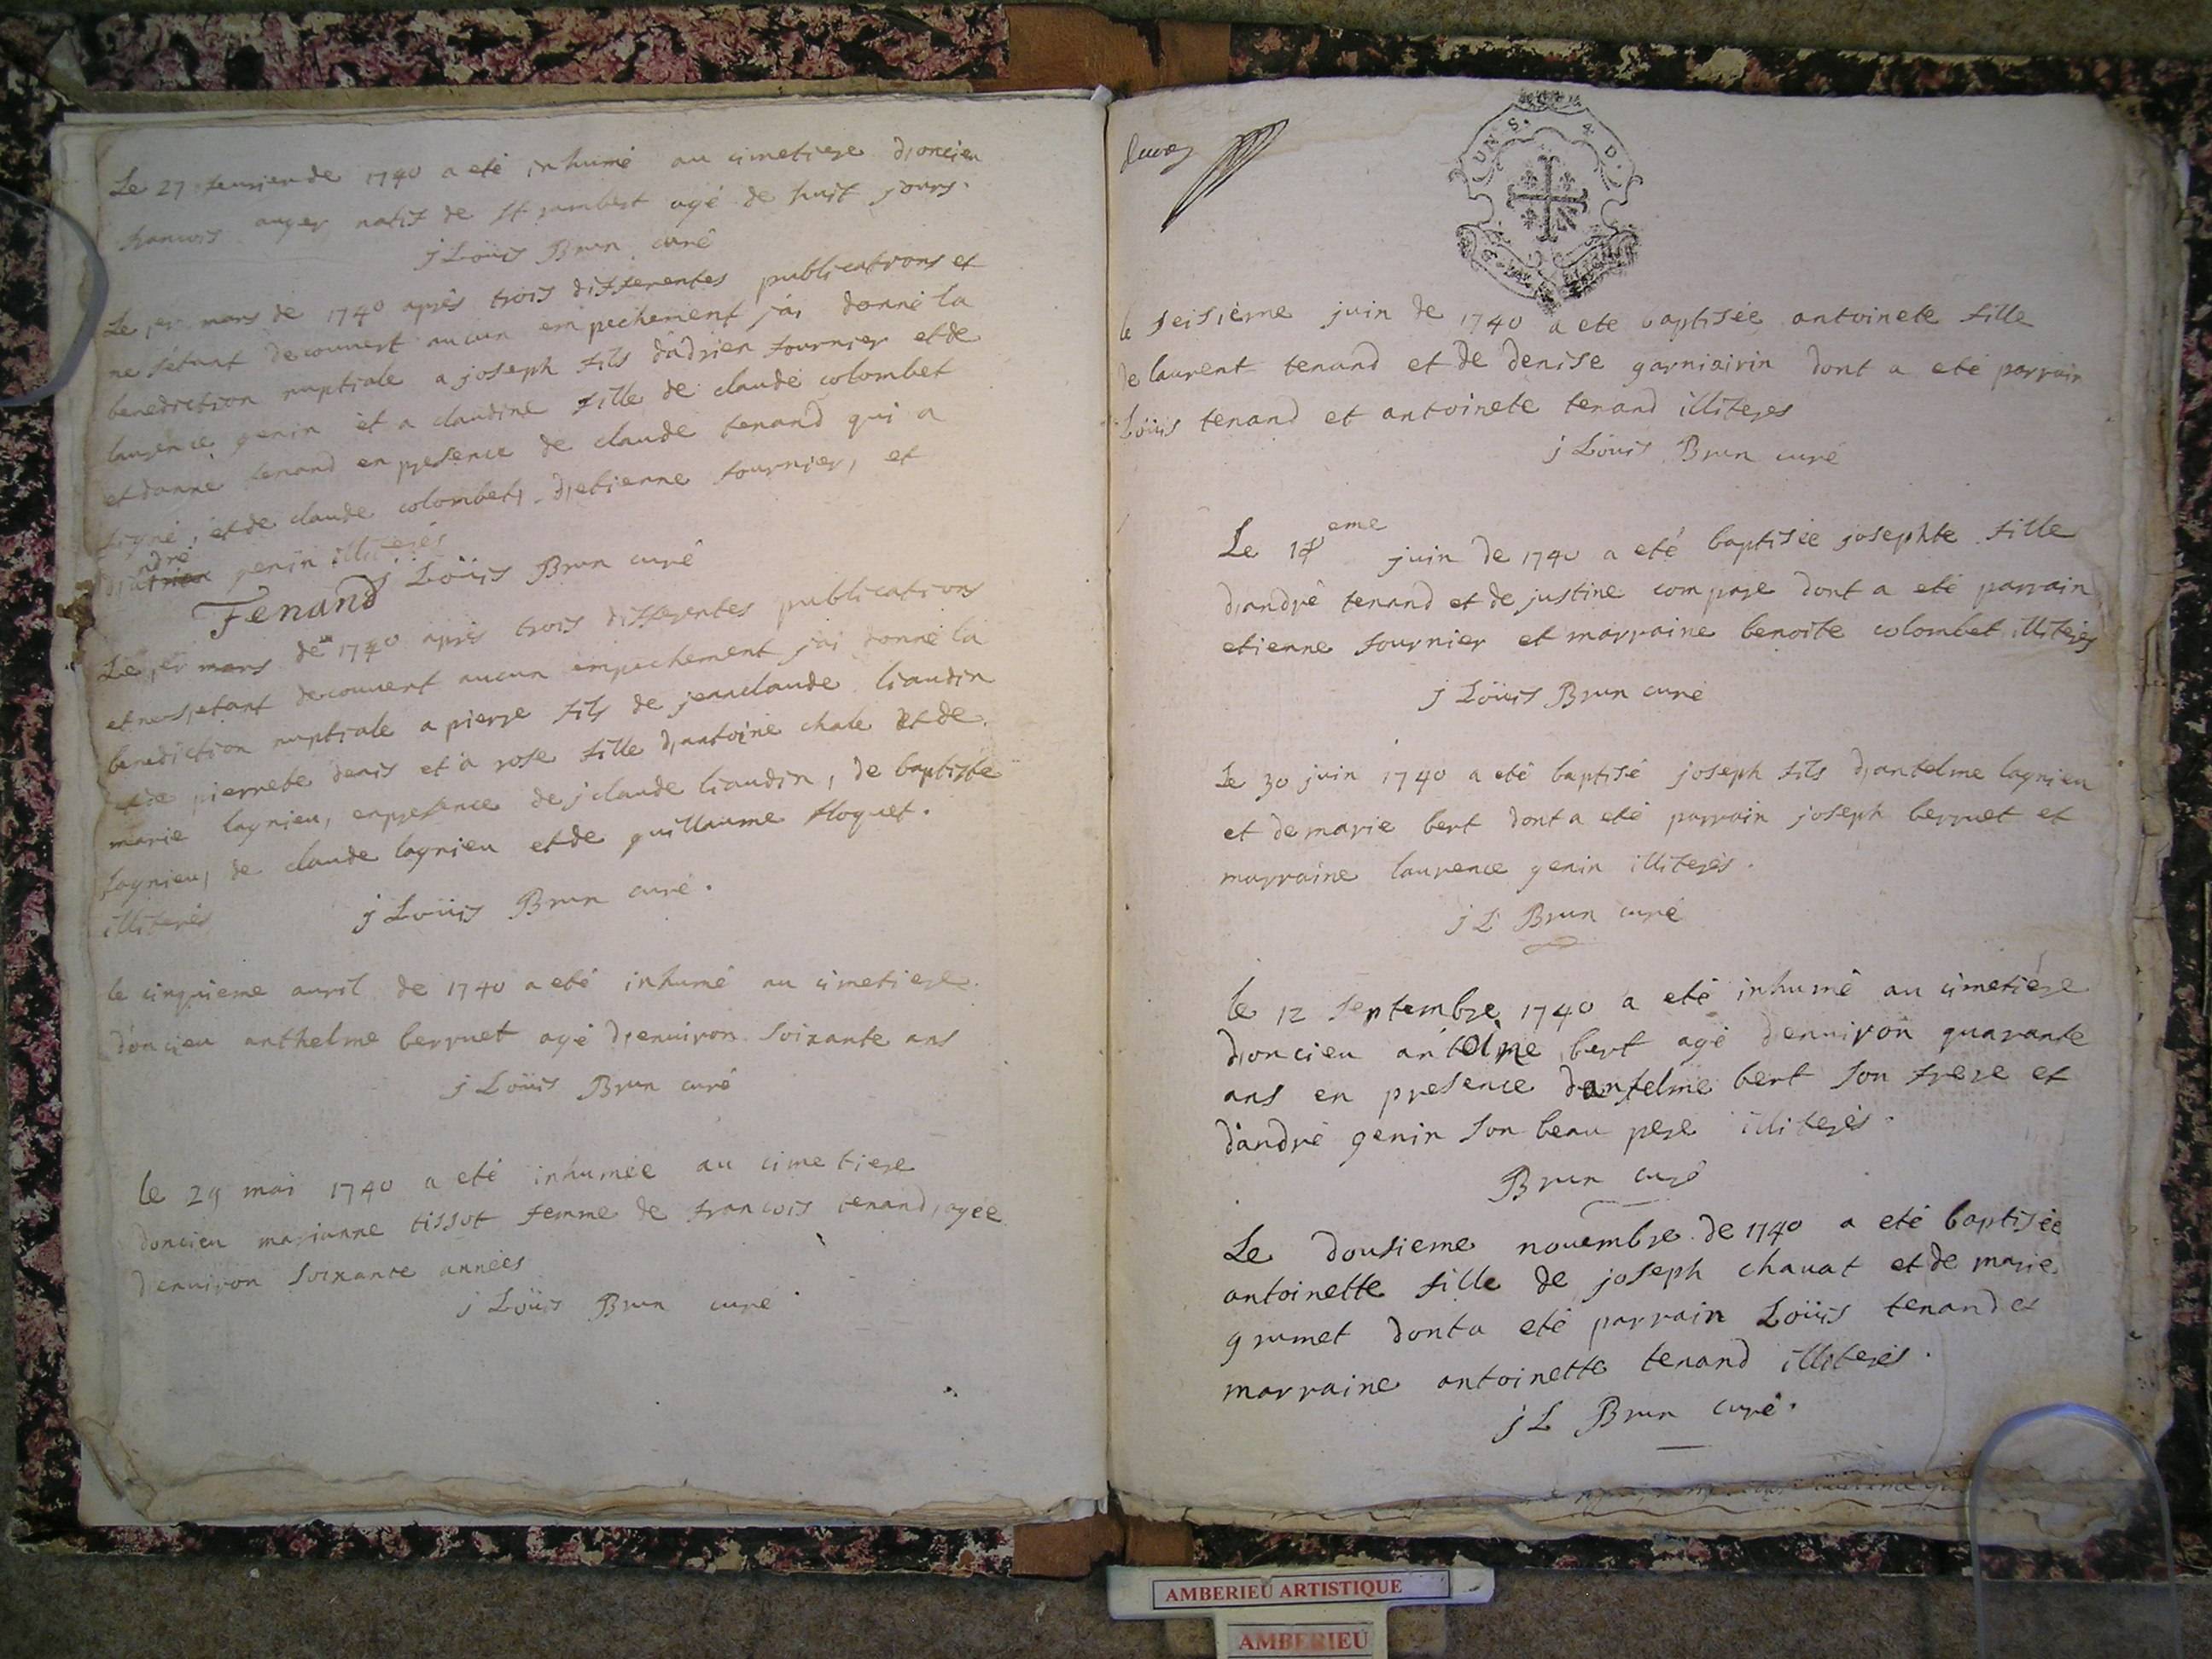 Le 27 feurier de 1740 a eté inhumé au cimetiere d,oncieu
francois auger natif de st rambert agé de huit jours.
j Loüis Brun curé
Le 1er mars de 1740 aprês trois differentes publications et
ne s'etant decouvert aucun empechement j'ai donné la
benediction nuptiale a joseph fils d'adrien fournier et de
laurence genin et a claudine fille de claude colombet
et d'anne tenand en presence de claude tenand qui a
signé, et de claude colombet, d,etienne fournier, et
d,andré genin illiterés
j Loüis Brun curé
Tenand
Le 1er mars de 1740 aprês trois differentes publications
et ne s,etant decouvert aucun empechement j'ai donné la
benediction nuptiale a pierre fils de jeanclaude liaudin
et de pierrete denis et a rose fille d,antoine chale et de
marie lagnieu, en presence de j claude liaudin, de baptiste
lagnieu, de claude lagnieu et de guillaume floquet.
illiterés
j Loüis Brun curé.
le cinquieme auril de 1740 a eté inhumé au cimetiere
d'oncieu anthelme berruet agé d,enuiron soixante ans
j Loüis Brun curé
le 29 mai 1740 a eté inhumée au cimetiere
doncieu marianne tissot femme de francois tenand, agée
d'enuiron soixante années
j Loüis Brun curé
UNS. 4. D.
le seisiéme juin de 1740 a eté baptisée antoinete fille
de laurent tenand et de denise garnisirin dont a eté parrain
Loüis tenand et antoinete tenand illiteres
j Loüis Brun curé
Le eme juin de 1740 a eté baptisée josephte fille
d,andré tenand et de justine compare dont a eté parrain
etienne fournier et marraine benoite colombet illiterés
j Loüis Brun curé
Le 30 juin 1740 a eté baptisé joseph fils d,antelme lagnieu
et de marie bert dont a eté parrain joseph berruet et
marraine laurence genin illiterés.
j L Brun curé
le 12 septembre 1740 a eté inhumé au cimetiére
d,oncieu antoine bert agé d'enuiron quarante
ans en presence dantelme bert son frere et
d'andré genin son beau pere illiterés.
Brun curé
Le dousieme nouembre de 1740 a eté baptisée
antoinette fille de joseph chauat et de marie
grumet dont a eté parrain Loüis tenand et
marraine antoinette tenand illiterés.
j L Brun curé.
AMBERIEU ARTISTIQUE
AMBERIEU